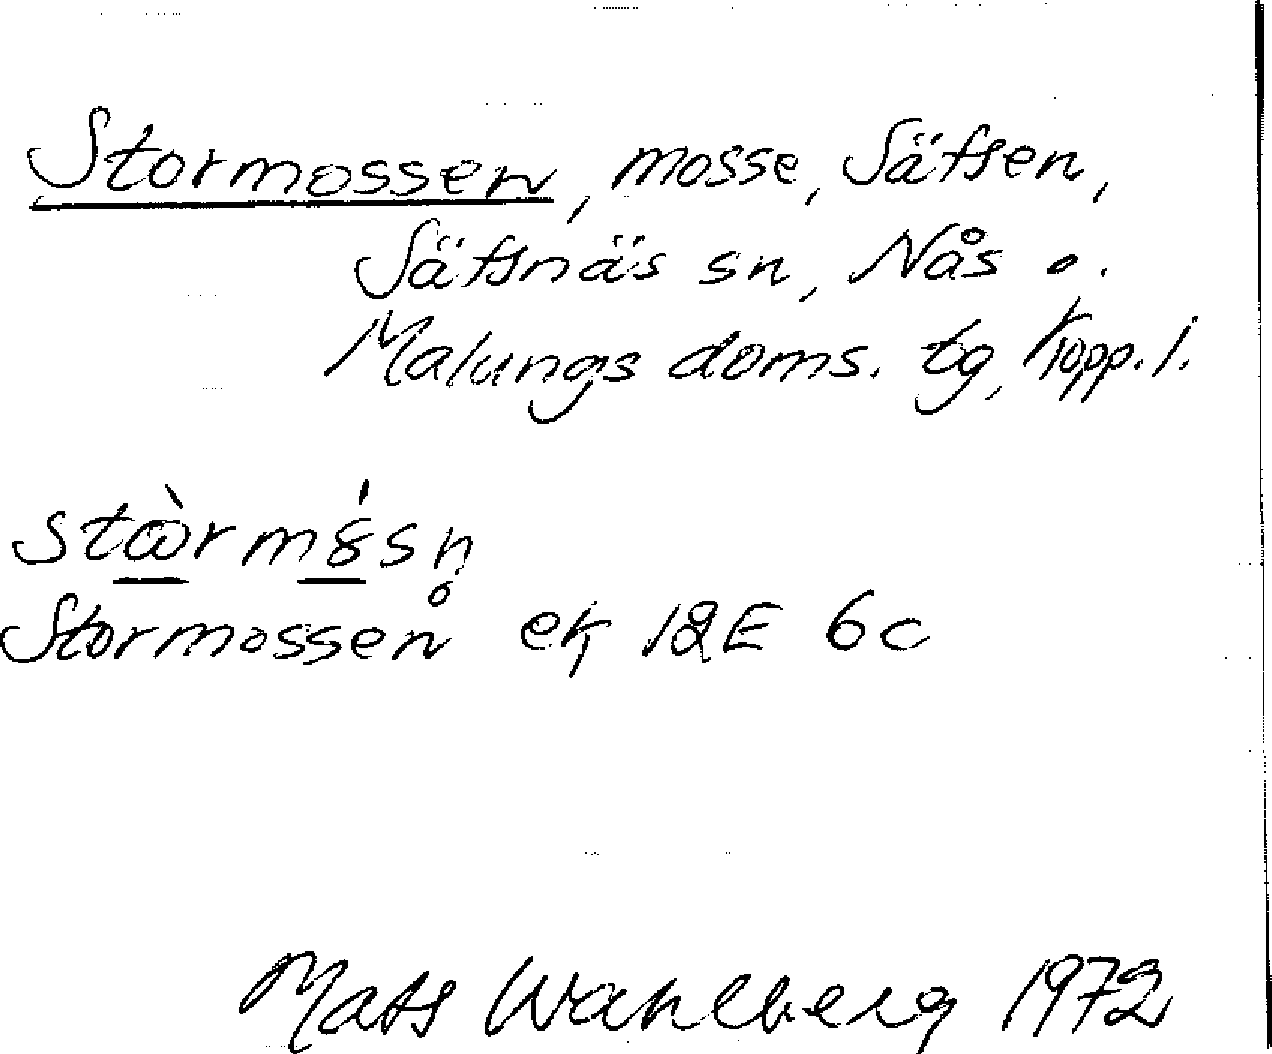 Stormossen, mosse, Sätsen,
Sätsnäs sn, Nås o.
Malungs doms. tg, Kopp. l.
Stormossen ek 12E 6c
Mats Wahlberg 1972